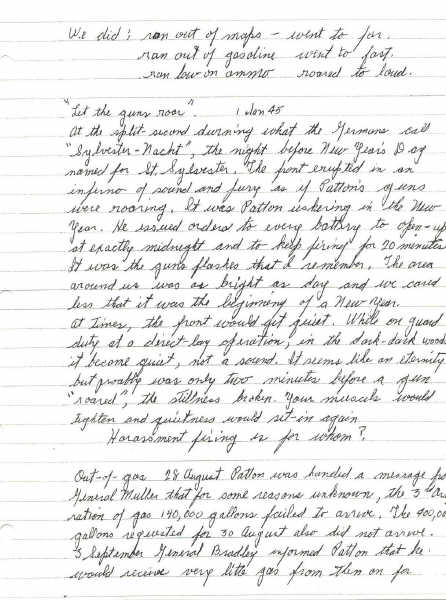 We did; ran out of maps - went to far.
ran out of gasoline went to fast.
ran low on ammo roared to loud.
"Let the guns roar". 1 Jan 45
At the split-second durning what the Germans call
"Sylvester-Nacht", the night before New Year's Day
named for St. Sylvester. The front erupted in an
inferno of sound and fury as if Patton's guns
were roaring. It was Patton ushering in the New
Year. He issued orders to every battery to open-up
at exactly midnight and to keep firing for 20 minutes
It was the guns flashes that I remember. The area
around us was as bright as day and we cared
less that it was the beginning of a New Year.
At Times, the front would get quiet. While on guard
duty at a direct-lay operation, in the dark-dark woods
it become quiet, not a sound. It seems like an eternity
but proably was only two minutes before a gun
"roared", the stillness broken. Your muscels would
tighten and quietness would set-in again
Harassment firing is for whom?
Out-of gas 28 August Patton was handed a message fro
General Muller that for some reasons unknown, the 3rd Ar
ration of gas 140,000 gallons failed to arrive. The 400,00
gallons requested for 30 August also did not arrive.
3 September General Bradley informed Patton that he
would receive very little gas from then on for